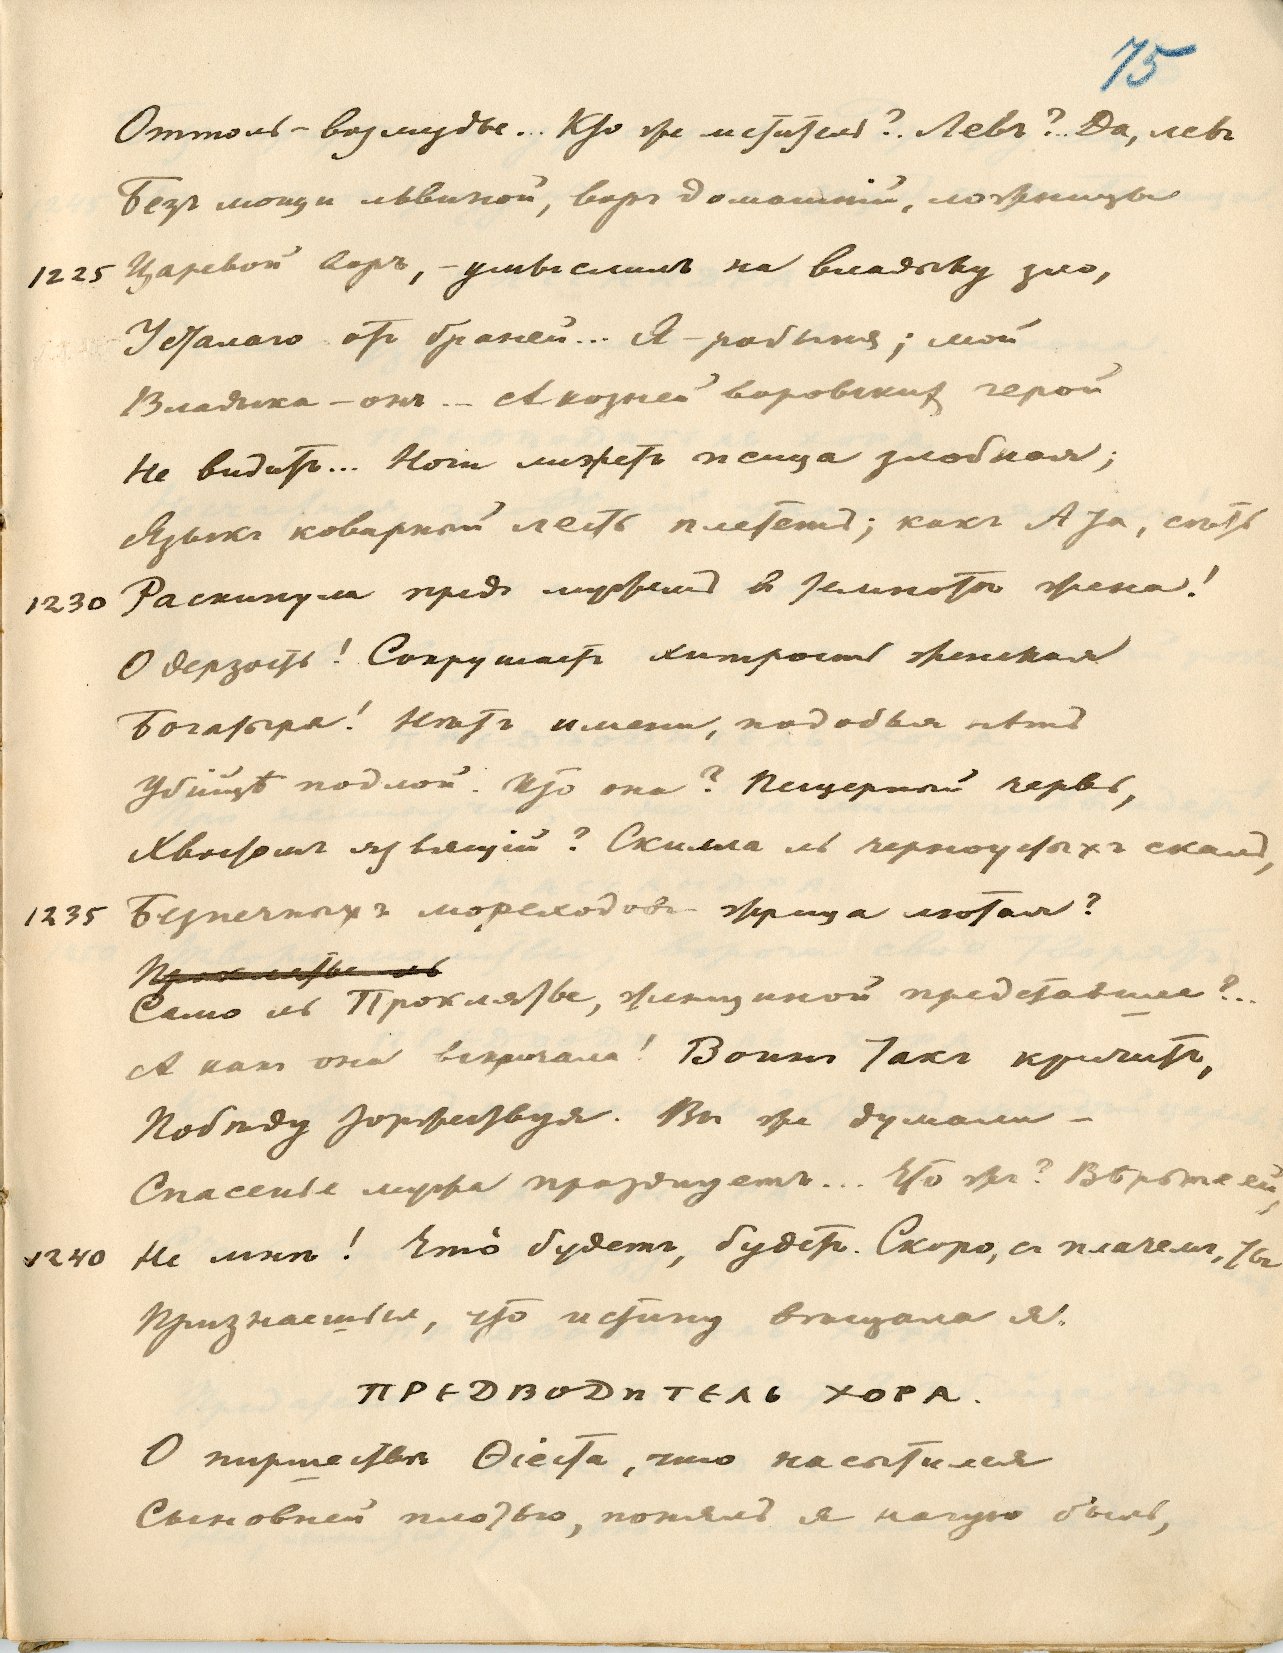 75
Оттоль – возмездье... Кто же мститель?.. Левъ?.. Да, левъ
Безъ мощи львиной, воръ домашній, ложницы
1225 Царевой воръ, – умыслилъ на владыку зло,
Усталаго отъ браней... Я – рабыня; мой
Владыка – онъ... А козней воровскихъ герой
Не видитъ... Ноги лижетъ псица злобная;
Языкъ коварный лесть плететъ; какъ Ата, сѣть
1230 Раскинула предъ мужемъ въ темнотѣ жена!
О дерзость! Сокрушаетъ хитрость женская
Богатыря! Нѣтъ имени, подобья нѣтъ
Убійцѣ подлой. Кто она? Пещерный червь,
Хвостомъ язвящій? Скилла ль черноустыхъ скалъ,
1235 Безпечныхъ мореходовъ жрица лютая?
Проклятье ль
Само ль Проклятье, женщиной представшее?..
А какъ она вскричала! Воинъ такъ кричитъ,
Побѣду торжествуя. Вы же думали –
Спасенье мужа празднуетъ... Что жъ? Вѣрьте ей,
1240 Не мнѣ! Что́ будетъ, будетъ. Скоро, съ плачемъ, ты
Признаешься, что истину вѣщала я.
ПРЕДВОДИТЕЛЬ ХОРА.
О пиршествѣ Ѳіеста, что насытился
Сыновней плотью, понялъ я нагую быль,